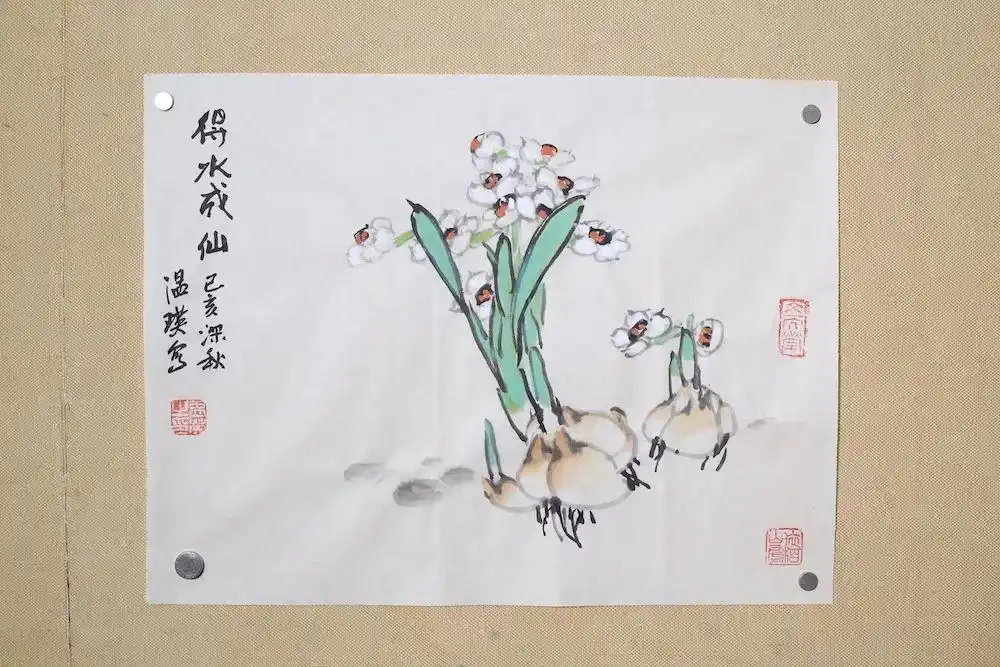 得水成仙
己亥深秋
温瑛写